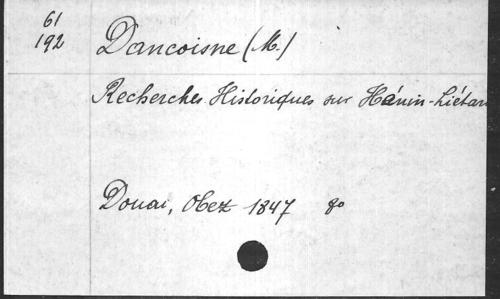 61
192
Dancoisne (M.)
Recherches Historiques sur Hénin-Liétar
Douai, Obez 1847 8o